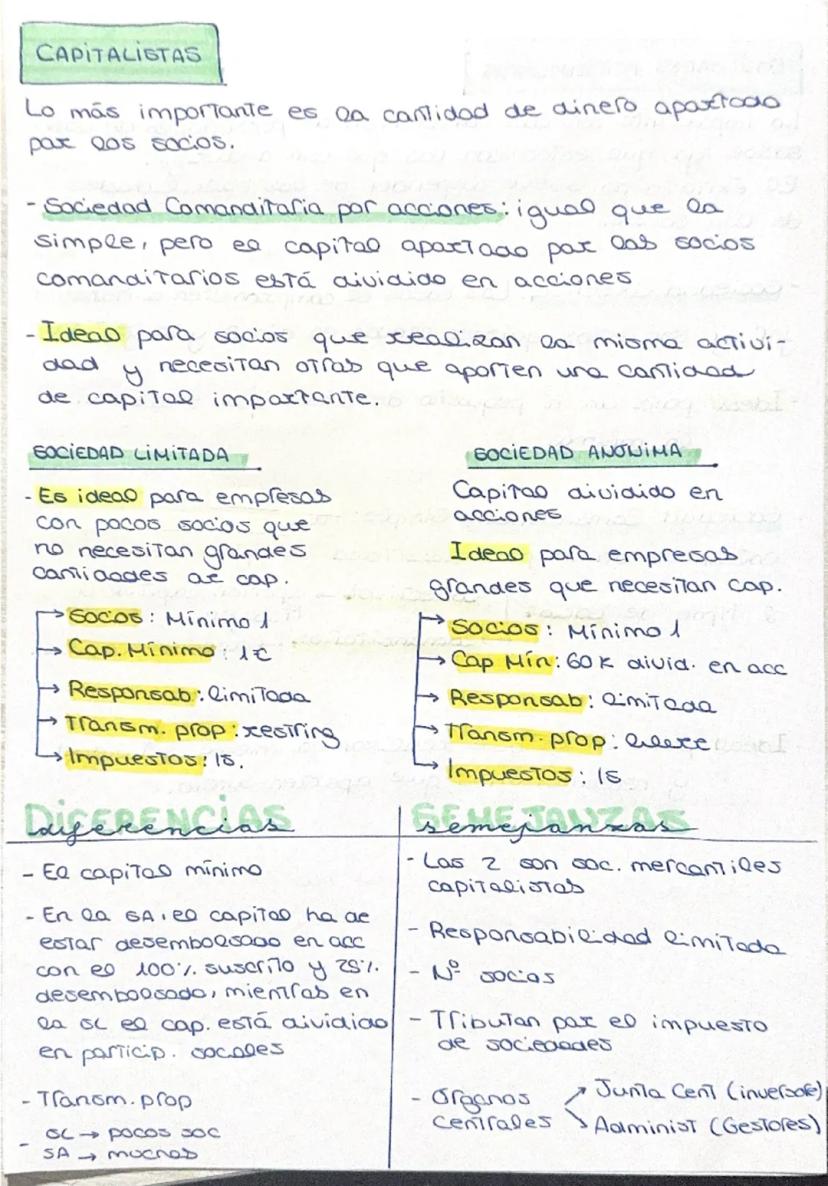 CAPITALISTAS
Lo más importante es la cantidad de dinero aportado
por los socios.
- Sociedad Comanditaria por acciones: igual que la
simple, pero el capital aportado por los socios
comanditarios está dividido en acciones
- Ideal para socios que realizan la misma activi-
dad y necesitan otros que aporten una cantidad
de capital importante.
SOCIEDAD LIMITADA
- Es ideal para empresas
con pocos socios que
no necesitan grandes
cantidades de cap.
→ Socios: Mínimo 1
→ Cap. Mínimo: 1€
→ Responsab: limitada
→ Transm. prop: restring
→ Impuestos: IS.
SOCIEDAD ANONIMA
Capital dividido en
acciones
Ideal para empresas
grandes que necesitan cap.
→ Socios: Mínimo 1
→ Cap Mín: 60K divid. en acc
→ Responsab: limitada
→ Transm. prop: libre
→ Impuestos: IS
DIFERENCIAS
diferencias
- El capital mínimo
- En la SA, el capital ha de
estar desembolsado en acc
con el 100% suscrito y 25%
desembolsado, mientras en
la SL el cap. está dividido
en particip. sociales
- Transm. prop
- SL → pocos soc
SA → muchos
SEMEJANZAS
semejanzas
- Las 2 son soc. mercantiles
capitalistas
- Responsabilidad limitada
- Nº socios
- Tributan por el impuesto
de sociedades
- Órganos
centrales
→ Junta Gent (inversore)
→ Administ (Gestores)